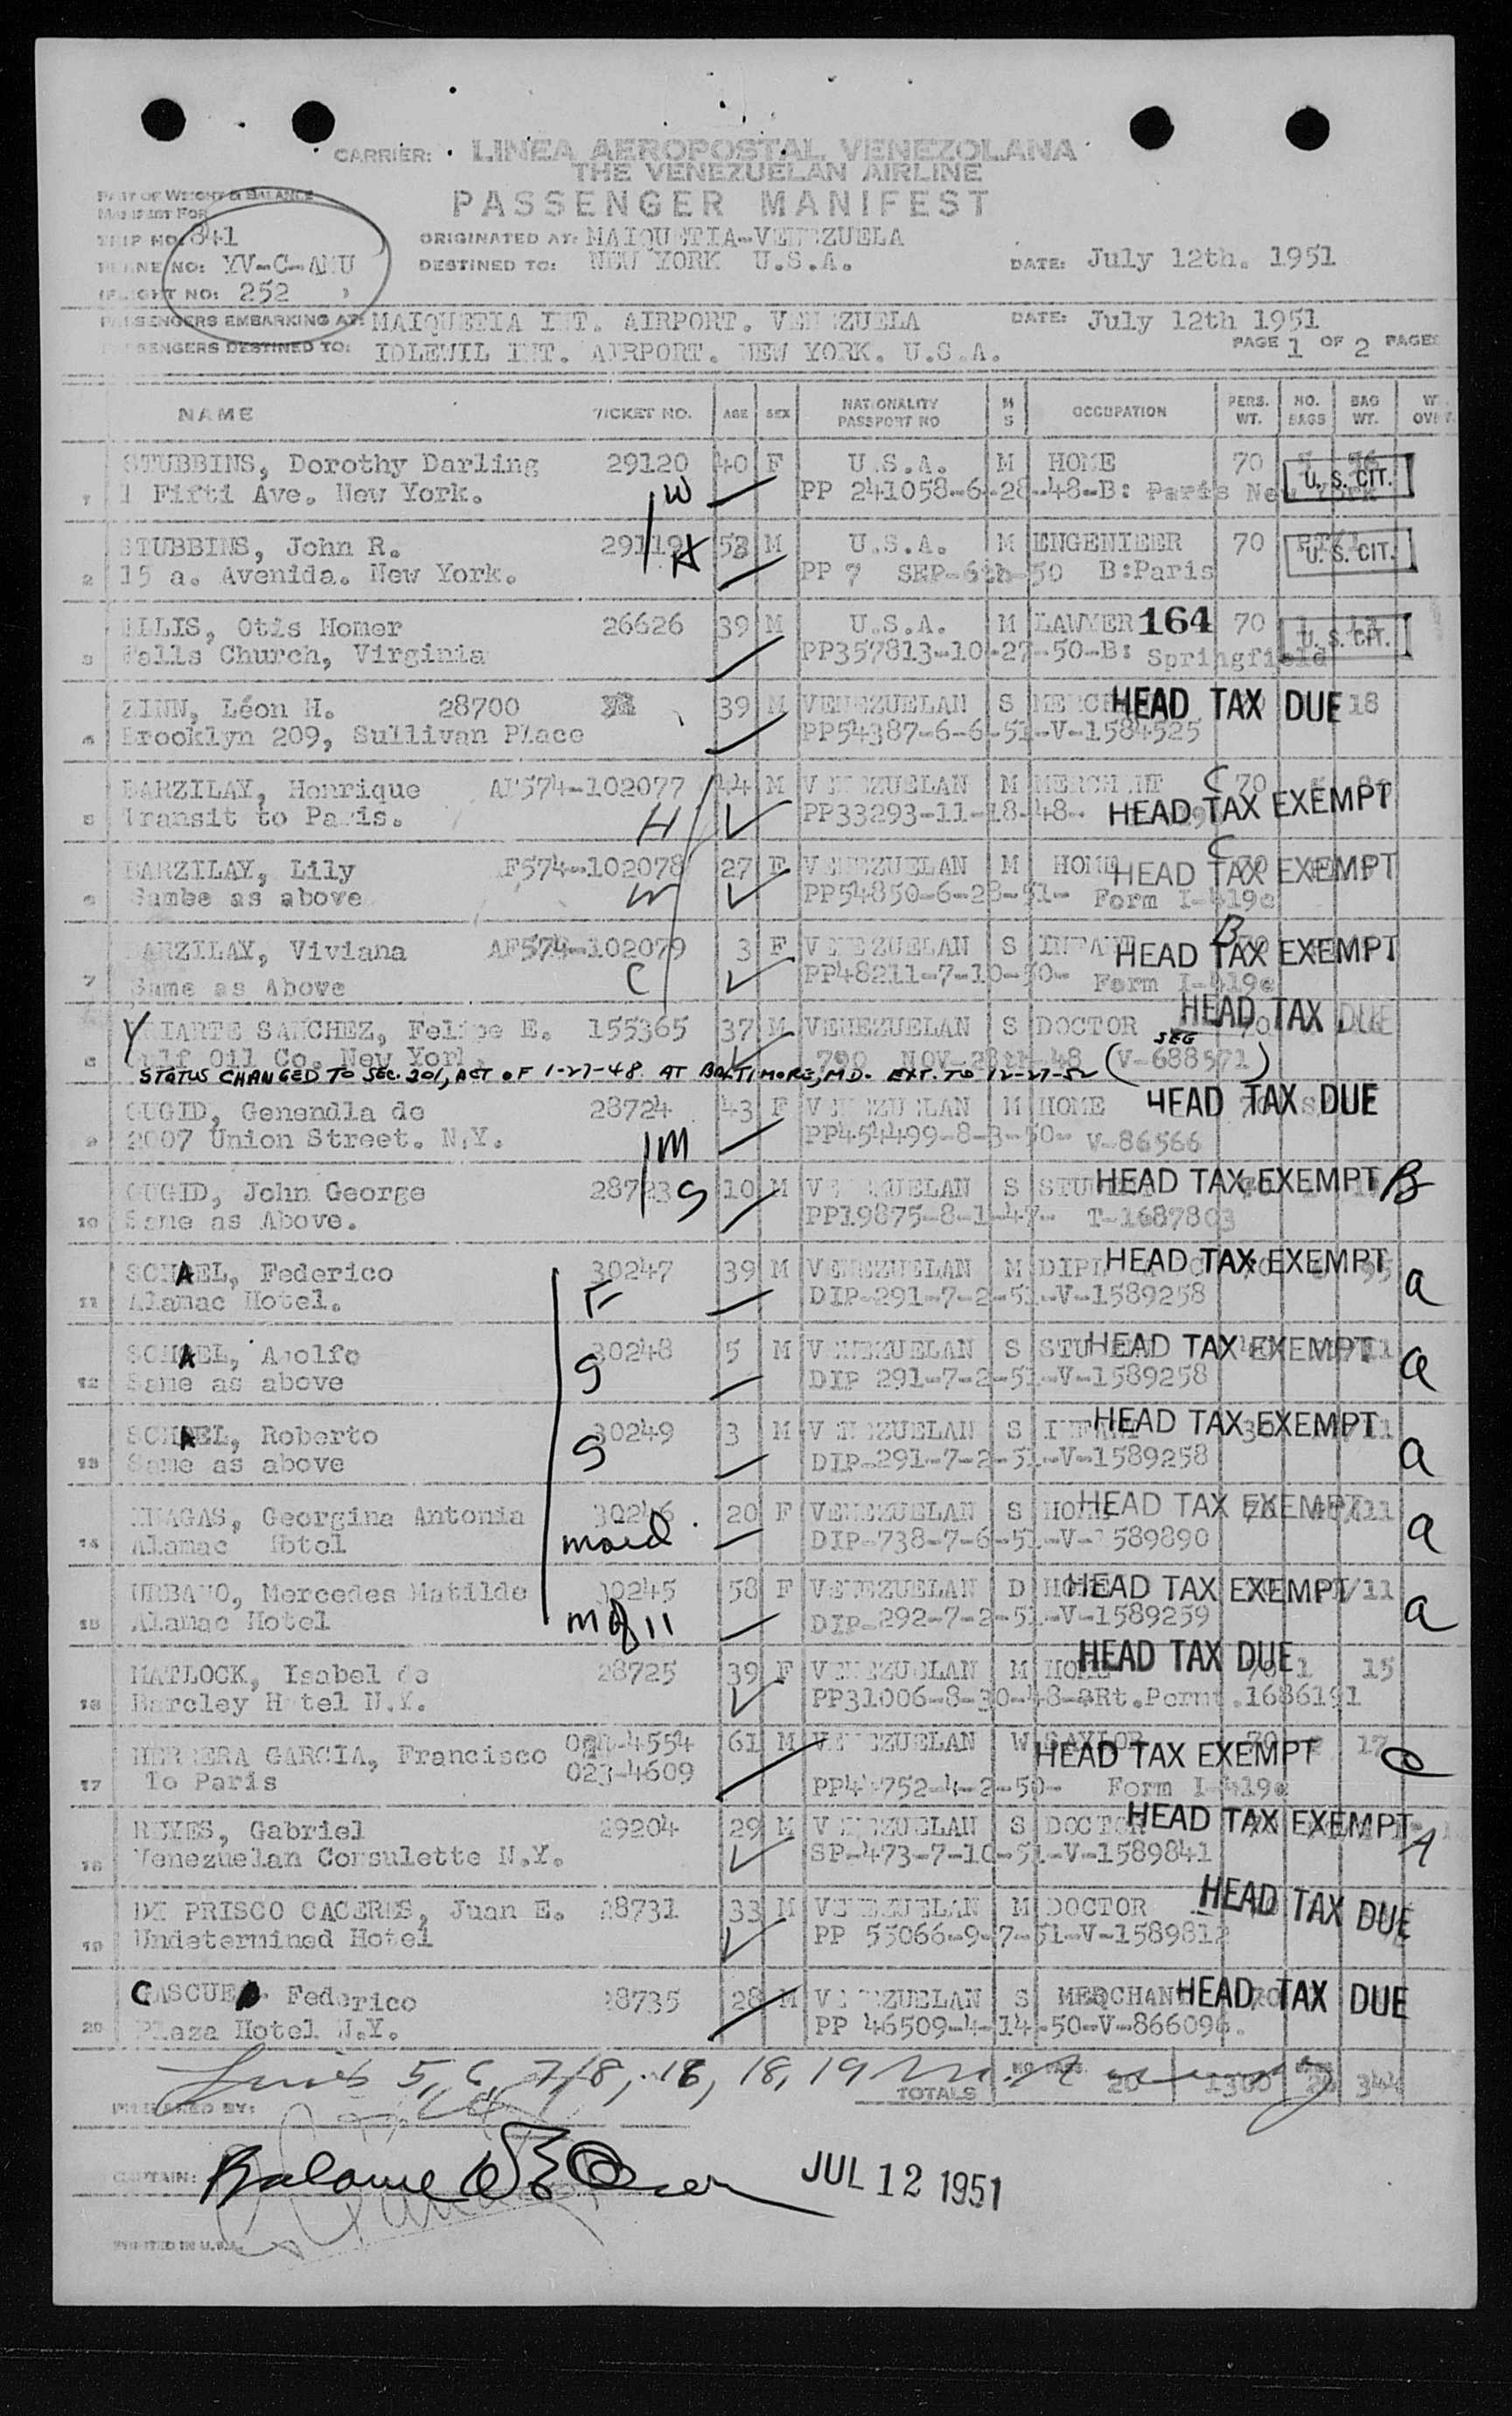 CARRIER: LINEA AEROPOSTAL VENEZOLANA
THE VENEZUELAN AIRLINE
PASSENGER MANIFEST
PART OF WEIGHT & BALANCE
MANIFEST FOR
TRIP NO: 841
PLANE NO: YV-C-AMU
(FLIGHT NO: 252 )
ORIGINATED AT: MAIQUETIA-VENEZUELA
DESTINED TO: NEW YORK U.S.A.
DATE: July 12th. 1951
PASSENGERS EMBARKING AT: MAIQUETIA INT. AIRPORT. VENEZUELA DATE: July 12th 1951
PASSENGERS DESTINED TO: IDLEWIL INT. AIRPORT. NEW YORK. U.S.A. PAGE 1 OF 2 PAGES
NAME TICKET NO. AGE SEX NATIONALITY PASSPORT NO M S OCCUPATION PERS. WT. NO. BAGS BAG WT.
STUBBINS, Dorothy Darling 29120 40 F U.S.A. M HOME 70
1 1 Fifti Ave. New York. W PP 241058-6-28-48-B: Paris New York U. S. CIT.
STUBBINS, John R. 29119 H 53 M U.S.A. M ENGENIEER 70
2 15 a. Avenida. New York. PP 7 SEP-6th-50 B:Paris U. S. CIT.
ELLIS, Otis Homer 26626 39 M U.S.A. M LAWYER 164 70
3 Falls Church, Virginia PP357813-10-27-50-B: Springfield U. S. CIT.
ZINN, Léon H. 28700 39 M VENEZUELAN S HEAD TAX DUE 18
4 Brooklyn 209, Sullivan Place PP54387-6-6-51-V-1584525
BARZILAY, Henrique AF574-102077 44 M VENEZUELAN M MERCHANT C 70
5 Transit to Paris. H PP33293-11-18-48- HEAD TAX EXEMPT
BARZILAY, Lily AF574-102078 27 F VENEZUELAN M HOME C HEAD TAX EXEMPT
6 Sambe as above W PP54850-6-28-51- Form I-419c
BARZILAY, Viviana AF574-102079 3 F VENEZUELAN S INFANT B HEAD TAX EXEMPT
7 Same as Above C PP48211-7-10-50- Form I-419c
YRIARTE SANCHEZ, Felipe E. 155365 37 M VENEZUELAN S DOCTOR HEAD TAX DUE
8 Gulf Oil Co. New York. 790 NOV-28th-48 (V-688571) SEG
STATUS CHANGED TO SEC. 201, ACT OF 1-27-48 AT BALTIMORE, MD. EXT. TO 12-27-52
CUGID, Genendla de 28724 43 F VENEZUELAN M HOME HEAD TAX DUE
9 2007 Union Street. N.Y. M PP454499-8-3-50- V-86566
CUGID, John George 28723 S 10 M VENEZUELAN S HEAD TAX EXEMPT B
10 Same as Above. PP19875-8-1-47- T-1687803
SCHAEL, Federico 30247 39 M VENEZUELAN M HEAD TAX EXEMPT
11 Alamac Hotel. F DIP-291-7-2-51-V-1589258 a
SCHAEL, Adolfo 30248 5 M VENEZUELAN S HEAD TAX EXEMPT
12 Same as above S DIP 291-7-2-51-V-1589258 a
SCHAEL, Roberto 30249 3 M VENEZUELAN S HEAD TAX EXEMPT
13 Same as above S DIP-291-7-2-51-V-1589258 a
Georgina Antonia 30246 20 F VENEZUELAN S HOME HEAD TAX EXEMPT
14 Alamac Hotel maid DIP-738-7-6-51-V-1589890 a
URBANO, Mercedes Matilde 30245 58 F VENEZUELAN D HOME HEAD TAX EXEMPT
15 Alamac Hotel M of 11 DIP-292-7-2-51-V-1589259 a
MATLOCK, Isabel de 28725 39 F VENEZUELAN M HOME HEAD TAX DUE 1 15
16 Barcley Hotel N.Y. PP31006-8-30-48-
HERRERA GARCIA, Francisco 61 M VENEZUELAN W HEAD TAX EXEMPT 17
17 To Paris 023-4609 Form I-419c
REYES, Gabriel 29204 29 M VENEZUELAN S DOCTOR HEAD TAX EXEMPT A
18 Venezuelan Consulette N.Y. SP-473-7-10-51-V-1589841
DI PRISCO CACERES, Juan E. 28731 33 M VENEZUELAN M DOCTOR HEAD TAX DUE
19 Undetermined Hotel PP 55066-9-7-51-V-1589812
Federico 28735 28 M VENEZUELAN S MERCHANT HEAD TAX DUE
20 Plaza Hotel N.Y. PP 46509-4-14-50-V-866096.
Lines 5, 6, 7, 8, 16, 18, 19
TOTALS NO. PASS. 20 344
PREPARED BY:
CAPTAIN:
JUL 12 1951
PRINTED IN U.S.A.